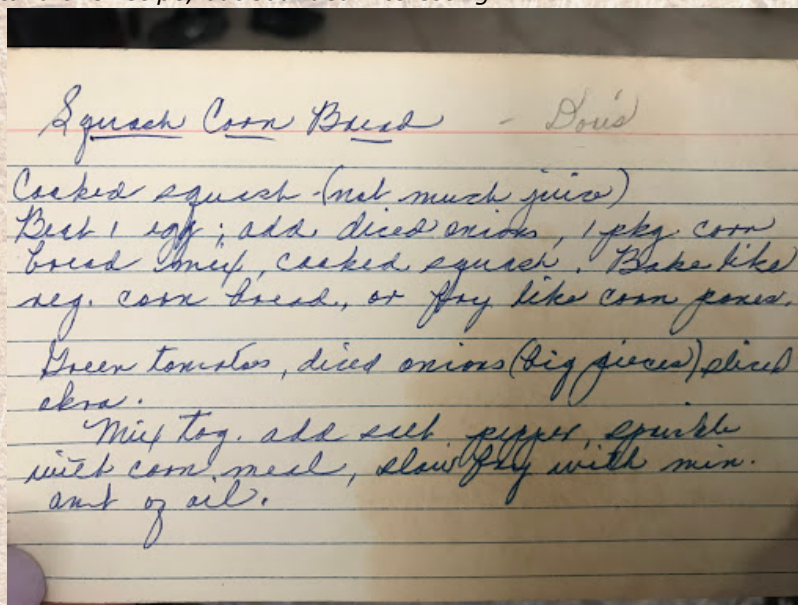 Squash Corn Bread - Doris
Cooked squash - (not much juice)
Beat 1 egg ; add diced onions, 1 pkg corn
bread mix, cooked squash. Bake like
reg. corn bread, or fry like corn pones.
Green tomatoes, diced onions (big pieces) sliced
okra.
Mix tog. add salt pepper, sprinkle
with corn meal, slow fry with min.
amt of oil.